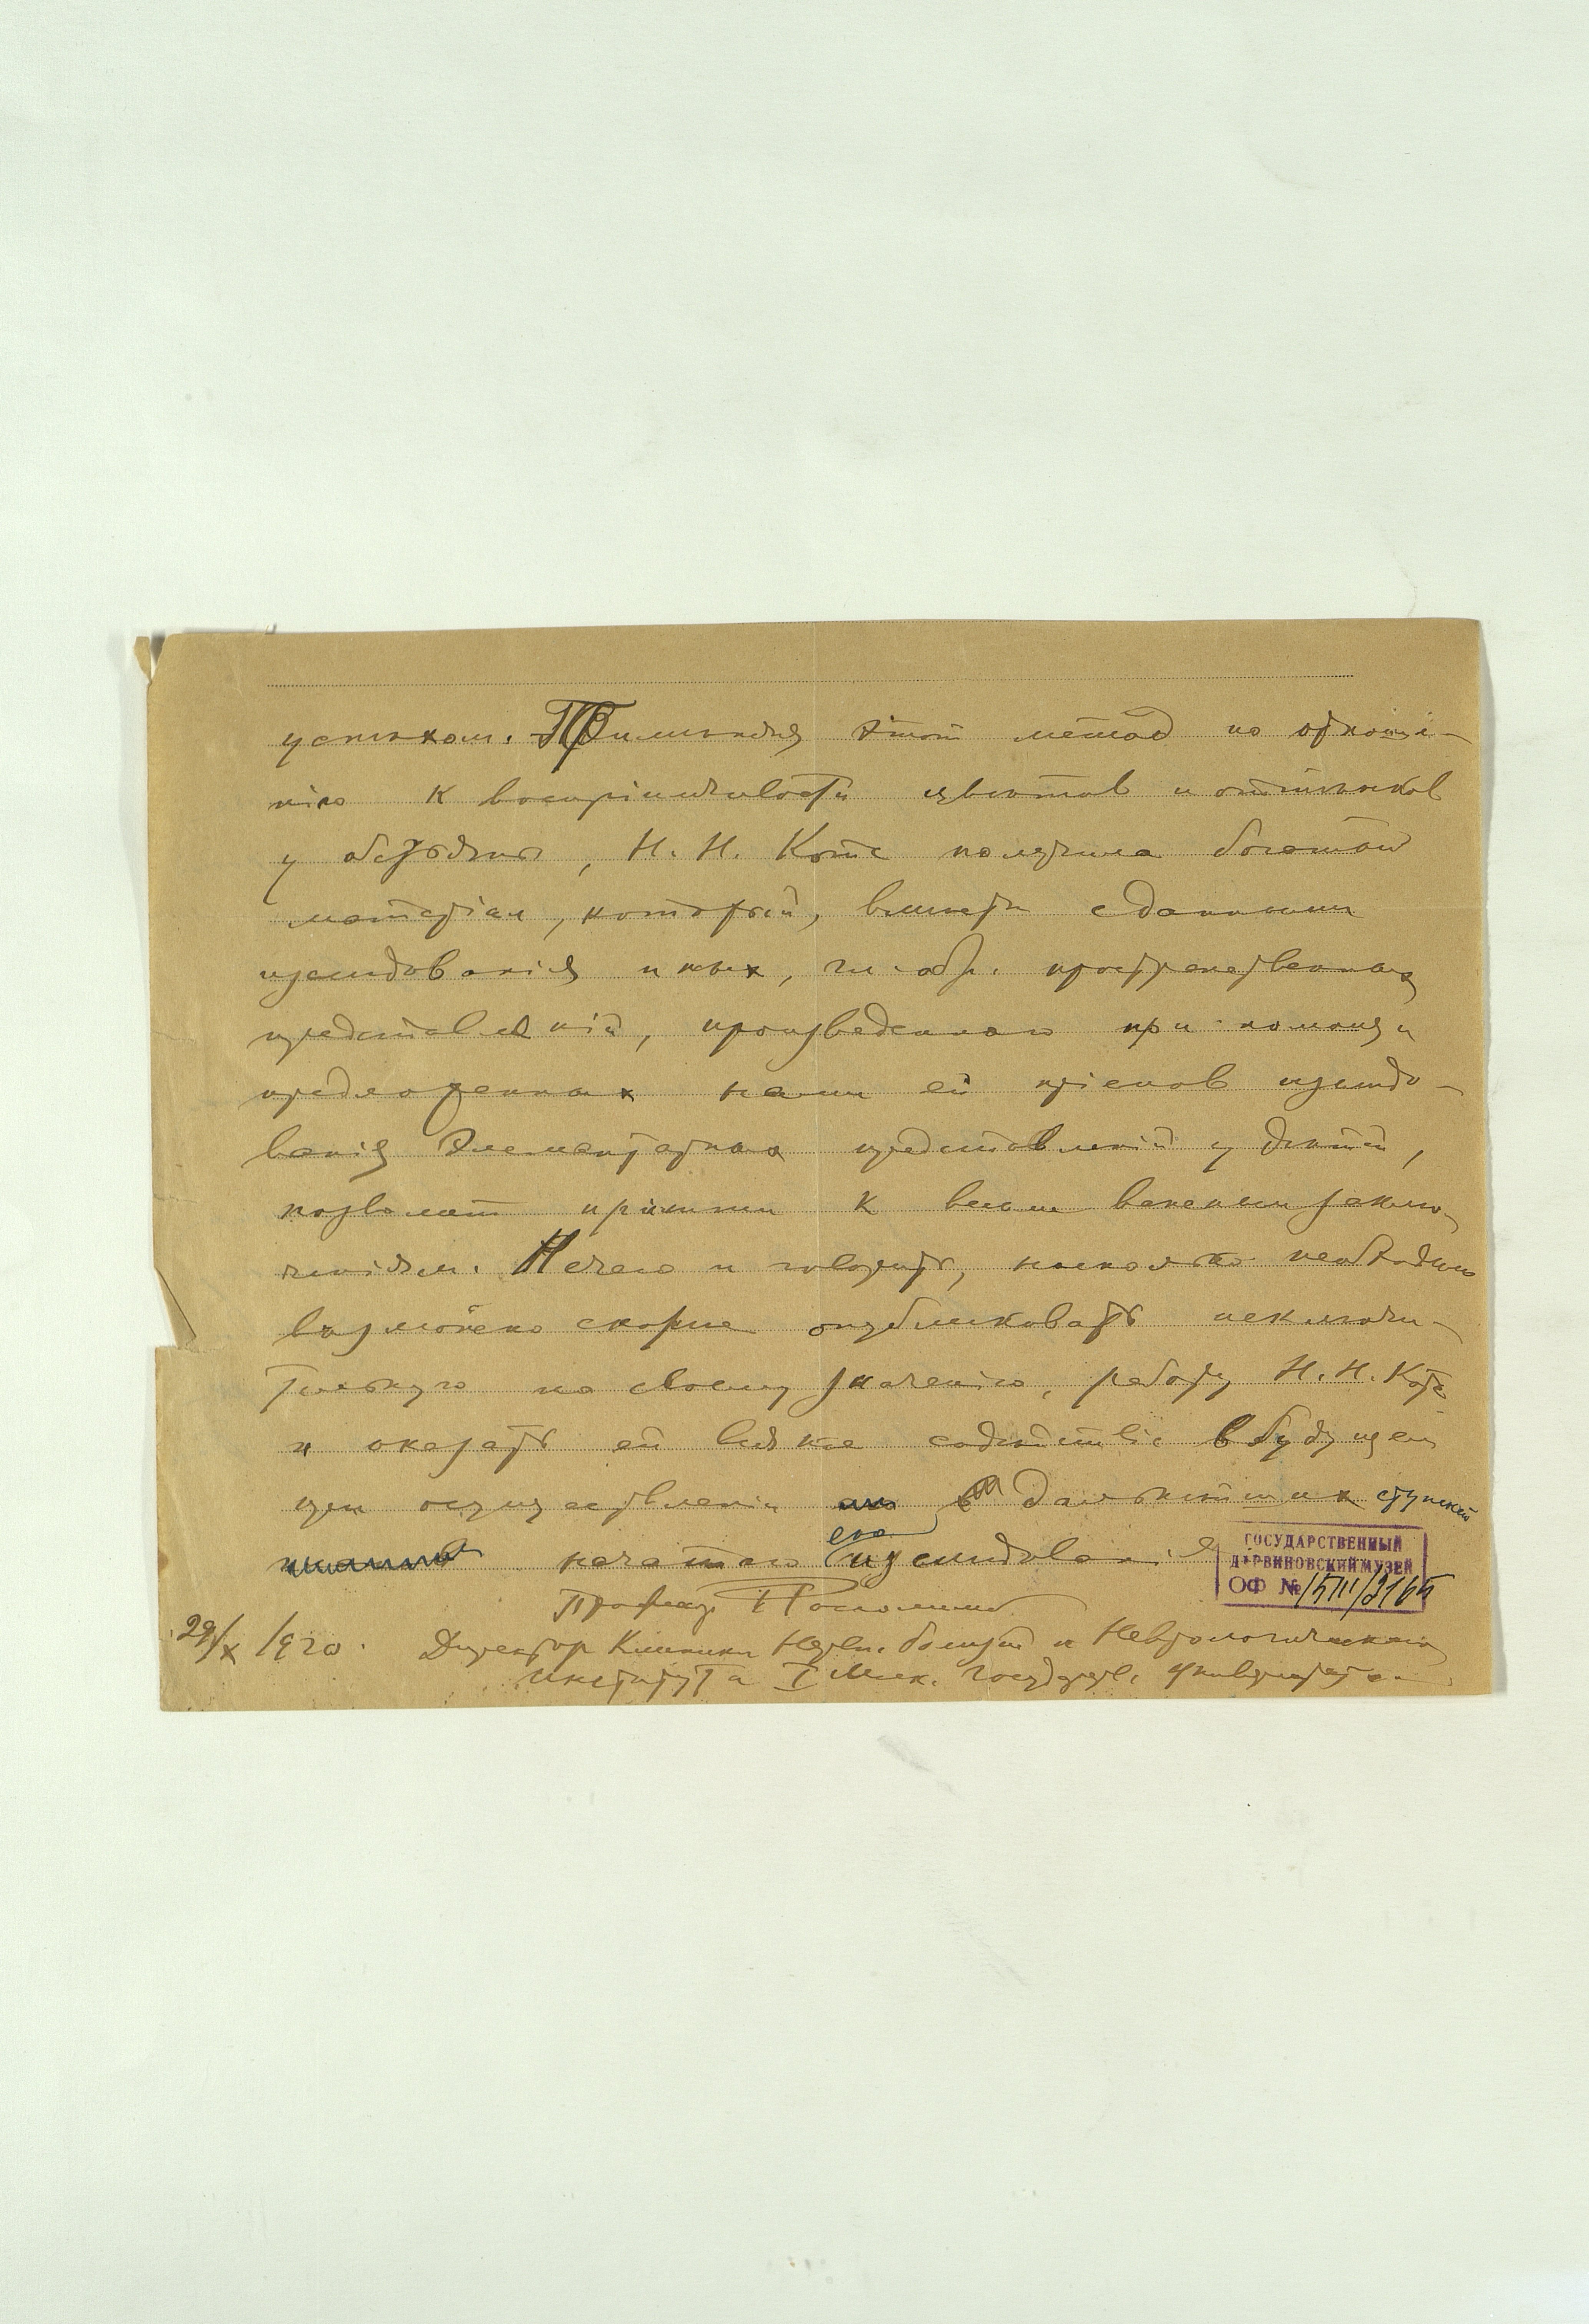 успехом. Применяя этот метод по отноше-
нію к воспріимчивости цветов и оттенков
у обезьяны, Н. Н. Котс получила богатый
матеріал, который, вместе с данными
изследованія иных, гл. обр. пространственных
представленій, произведенного при помощи
предложенных нами ей пріемов изследо-
ванія элементарных представленій у детей,
позволит прійти к весьма важным заклю-
ченіям. Нечего и говорить, насколько необходимо
возможно скорее опубликовать исключи-
тельную по своему значенію, работу Н. Н. Котс
и оказать ей всякое содействіе в будущем
при осуществленіи ею в дальнейших ступеней
начатого изследованія
Професор Г Россолимо
29/X 1920. Директор Клиники Нервн. болезней и Неврологического
Института I Моск. Государств. Университета.
ГОСУДАРСТВЕННЫЙ
ДАРВИНОВСКИЙ МУЗЕЙ
ОФ №